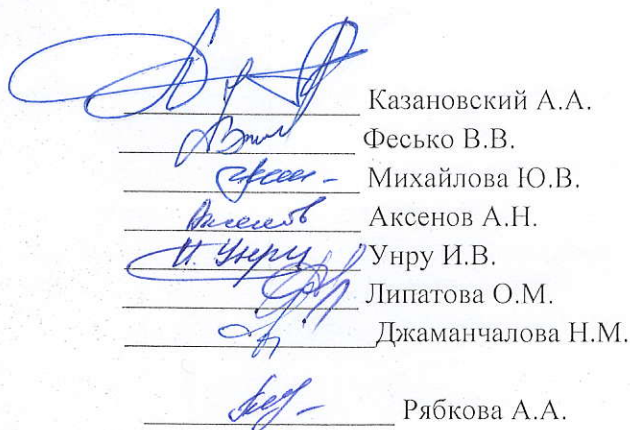 Казановский А.А.
Фесько В.В.
Михайлова Ю.В.
Аксенов А.Н.
И. Унру Унру И.В.
Липатова О.М.
Джаманчалова Н.М.
Рябкова А.А.